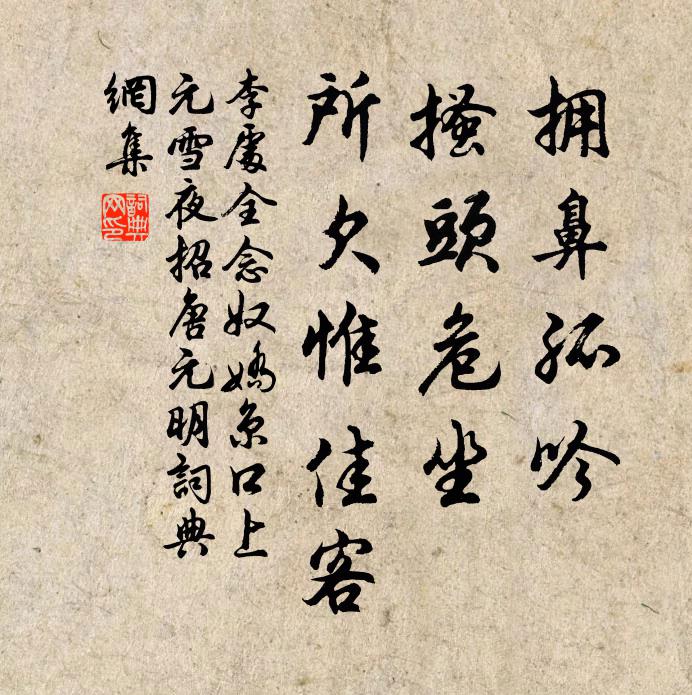 拥鼻孤吟
搔頭危坐
所欠惟佳客
李處全念奴嬌京口上
元雪夜招唐元明詞典
網集
詞典
网印